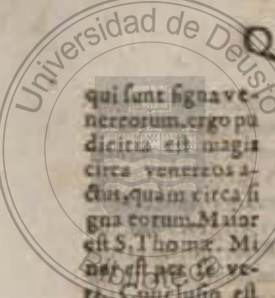 Universidad de Deusto
Q
qui sunt signa ve-
nereorum. ergo pu
dicitia est magis
circa venereos a-
ctus, quàm circa si
gna eorum. Maior
est S. Thomæ. Mi
nor est per se ve-
ra. Conclusio est
Biblioteca